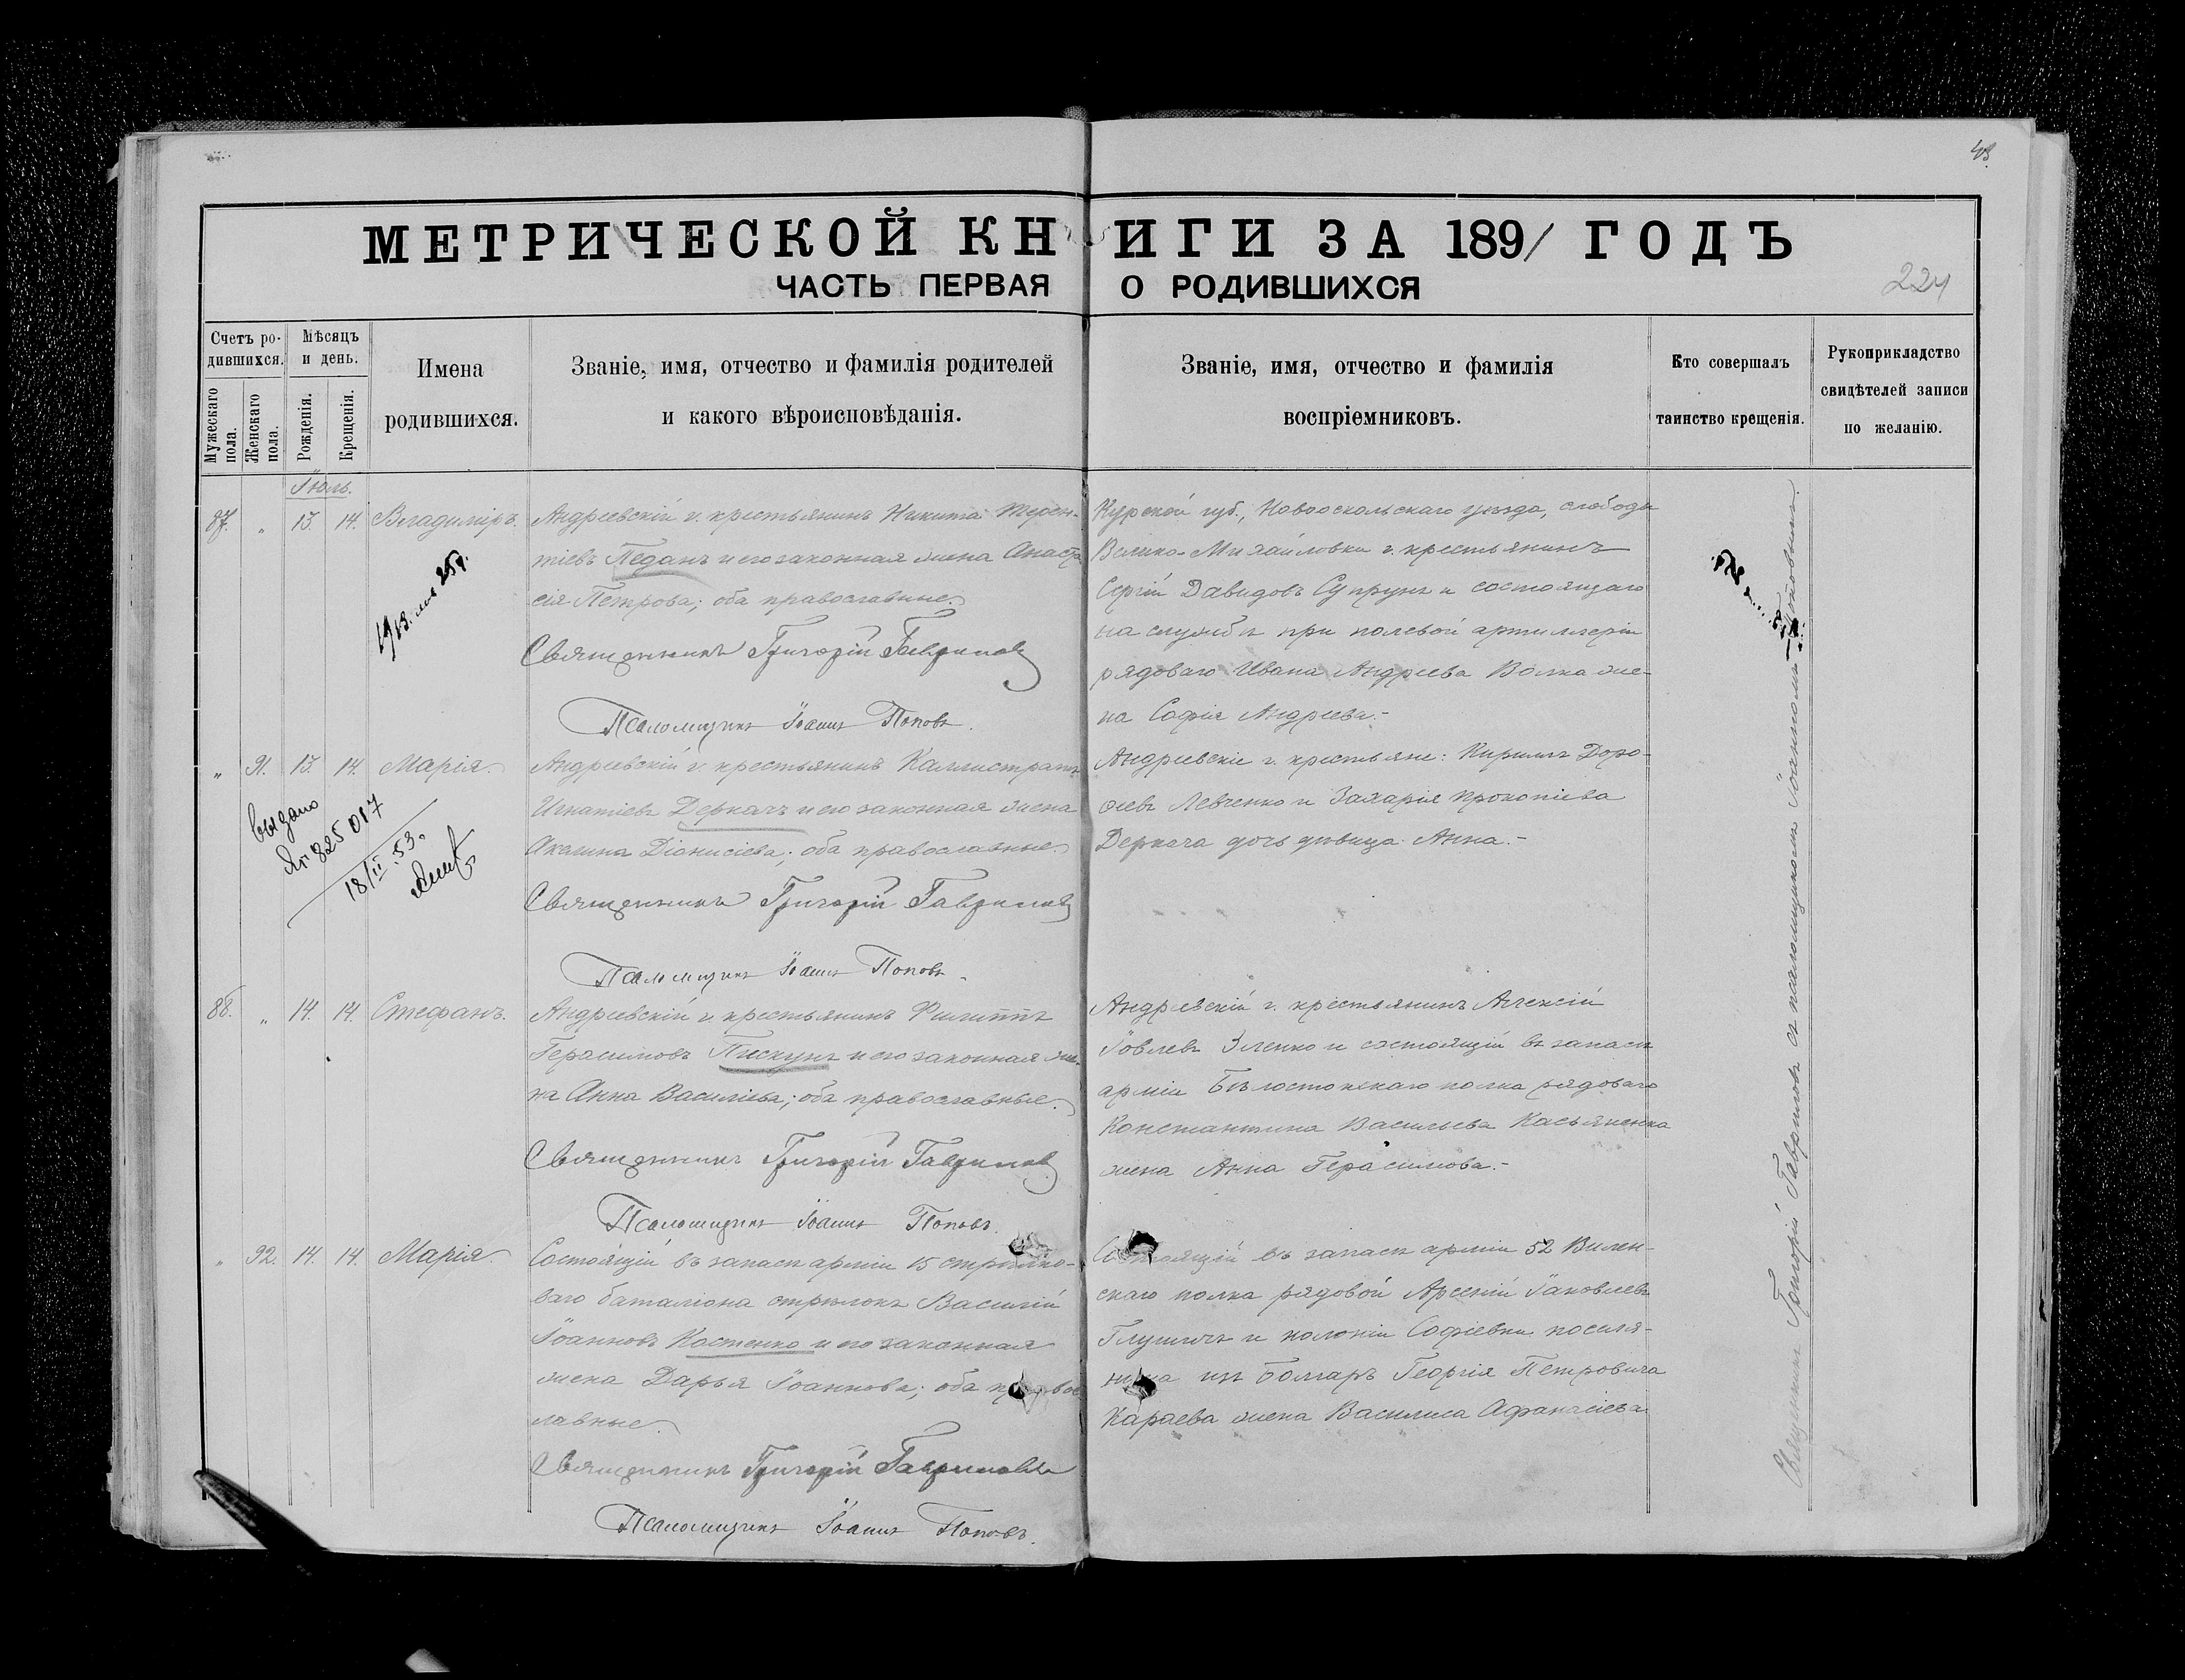 48
МЕТРИЧЕСКОЙ КНИГИ ЗА 1891 ГОДЪ
ЧАСТЬ ПЕРВАЯ О РОДИВШИХСЯ
224
Счетъ ро-
дившихся.
Мужескаго пола.
Женскаго пола.
Мѣсяцъ
и день.
Рожденія.
Крещенія.
Имена
родившихся.
Званіе, имя, отчество и фамилія родителей
и какого вѣроисповѣданія.
Званіе, имя, отчество и фамилія
воспріемниковъ.
Кто совершалъ
таинство крещенія.
Рукоприкладство
свидѣтелей записи
по желанію.
Іюль.
87. " 13. 14. Владиміръ.
Андреевскій г. крестьянинъ Никита Терен-
тіевъ Педанъ и его законная жена Анаста
сія Петрова; оба православные.
Священникъ Григорій Гавриловъ
Псаломщикъ Іоаннъ Поповъ.
Курской губ., Новооскольскаго уѣзда, слободы
Велико-Михайловки г. крестьянинъ
Сергій Давидовъ Супрунъ и состоящаго
на службѣ при полевой артиллеріи
рядоваго Ивана Андреева Волка же-
на Софія Андреева.-
" 91. 13. 14. Марія.
выдано
825017
18/II.53.
Андреевскій г. крестьянинъ Каллистратъ
Игнатіевъ Деркачъ и его законная жена
Акилина Діонисіева; оба православные.
Священникъ Григорій Гавриловъ
Псаломщикъ Іоаннъ Поповъ.
Андреевскіе г. крестьяне: Кириллъ Доро-
феевъ Левченко и Захарія Прокопіева
Деркача дочь дѣвица Анна.-
88. " 14. 14. Стефанъ.
Андреевскій г. крестьянинъ Филиппъ
Герасимовъ Пискунъ и его законная же-
на Анна Василіева; оба православные.
Священникъ Григорій Гавриловъ
Псаломщикъ Іоаннъ Поповъ.
Андреевскій г. крестьянинъ Алексій
Іовлевъ Зленко и состоящій въ запасѣ
арміи Бѣлостокскаго полка рядоваго
Константина Васильева Касьяненка
жена Анна Герасимова.-
" 92. 14. 14. Марія.
Состоящій въ запасѣ арміи 15 стрѣлко-
ваго баталіона стрѣлокъ Василій
Іоанновъ Костенко и его законная
жена Дарья Іоаннова; оба право
славные.
Священникъ Григорій Гавриловъ
Псаломщикъ Іоаннъ Поповъ.
Состоящій въ запасѣ арміи 52 Вилен-
скаго полка рядовой Арсеній Іаковлевъ
и колоніи Софіевки поселя-
нина изъ болгаръ Георгія Петровича
Караева жена Василиса Афанасіева.
Священникъ Григорій Гавриловъ съ псаломщикомъ Іоанномъ Поповымъ.